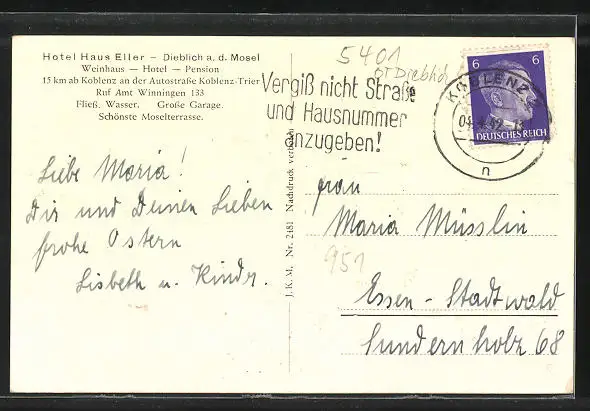 Hotel Haus Eller – Dieblich a. d. Mosel
Weinhaus — Hotel — Pension
15 km ab Koblenz an der Autostraße Koblenz-Trier
Ruf Amt Winningen 133
Fließ. Wasser. Große Garage.
Schönste Moselterrasse.
Liebe Maria!
Dir und Deinen Lieben
frohe Ostern
Lisbeth u. Kinder.
J. K. M. Nr. 2481 Nachdruck verboten
5401
Dieblich
Vergiß nicht Straße
und Hausnummer
anzugeben!
KOBLENZ
n
6 6
DEUTSCHES REICH
Frau
Maria Müsslin
951
Essen - Stadtwald
Sundernholz 68